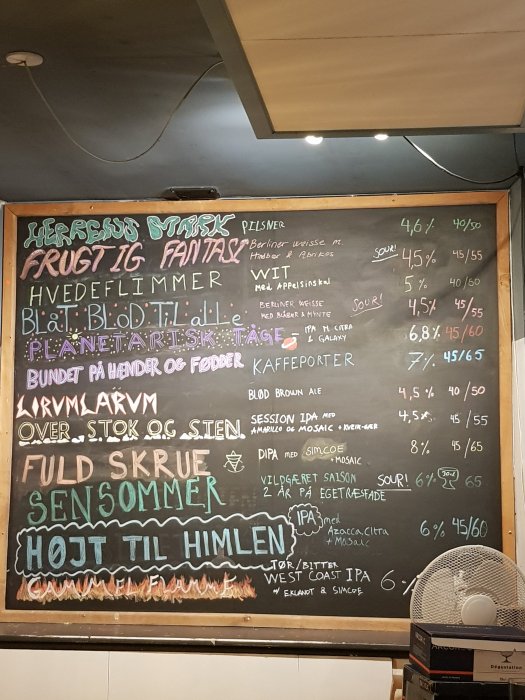 HERRENS MARK PILSNER 4,6% 40/50
FRUGTIG FANTASI Berliner Weisse m. Hindbær & Abrikos SOUR! 4,5% 45/55
HVEDEFLIMMER WIT Med Appelsinskal 5% 40/50
BLÅT BLOD TIL ALLE BERLINER WEISSE MED BLÅBÆR & MYNTE SOUR! 4,5% 45/55
PLANETARISK TÅGE IPA M. CITRA & GALAXY 6,8% 45/60
BUNDET PÅ HÆNDER OG FØDDER KAFFEPORTER 7% 45/65
LIRUMLARUM BLØD BROWN ALE 4,5% 40/50
OVER STOK OG STEN SESSION IDA MED AMARILLO OG MOSAIC + KVEIK-GÆR 4,5% 45/55
FULD SKRUE DIPA MED SIMCOE + MOSAIC 8% 45/65
SENSOMMER VILDGÆRET SAISON 2 ÅR PÅ EGETRÆSFADE SOUR! 6% 65
HØJT TIL HIMLEN IPA med Azacca, Citra + Mosaic 6% 45/60
GAMMEL FLAMME TØR/BITTER WEST COAST IPA M/ EKUANOT & SIMCOE 6%
Dégustation